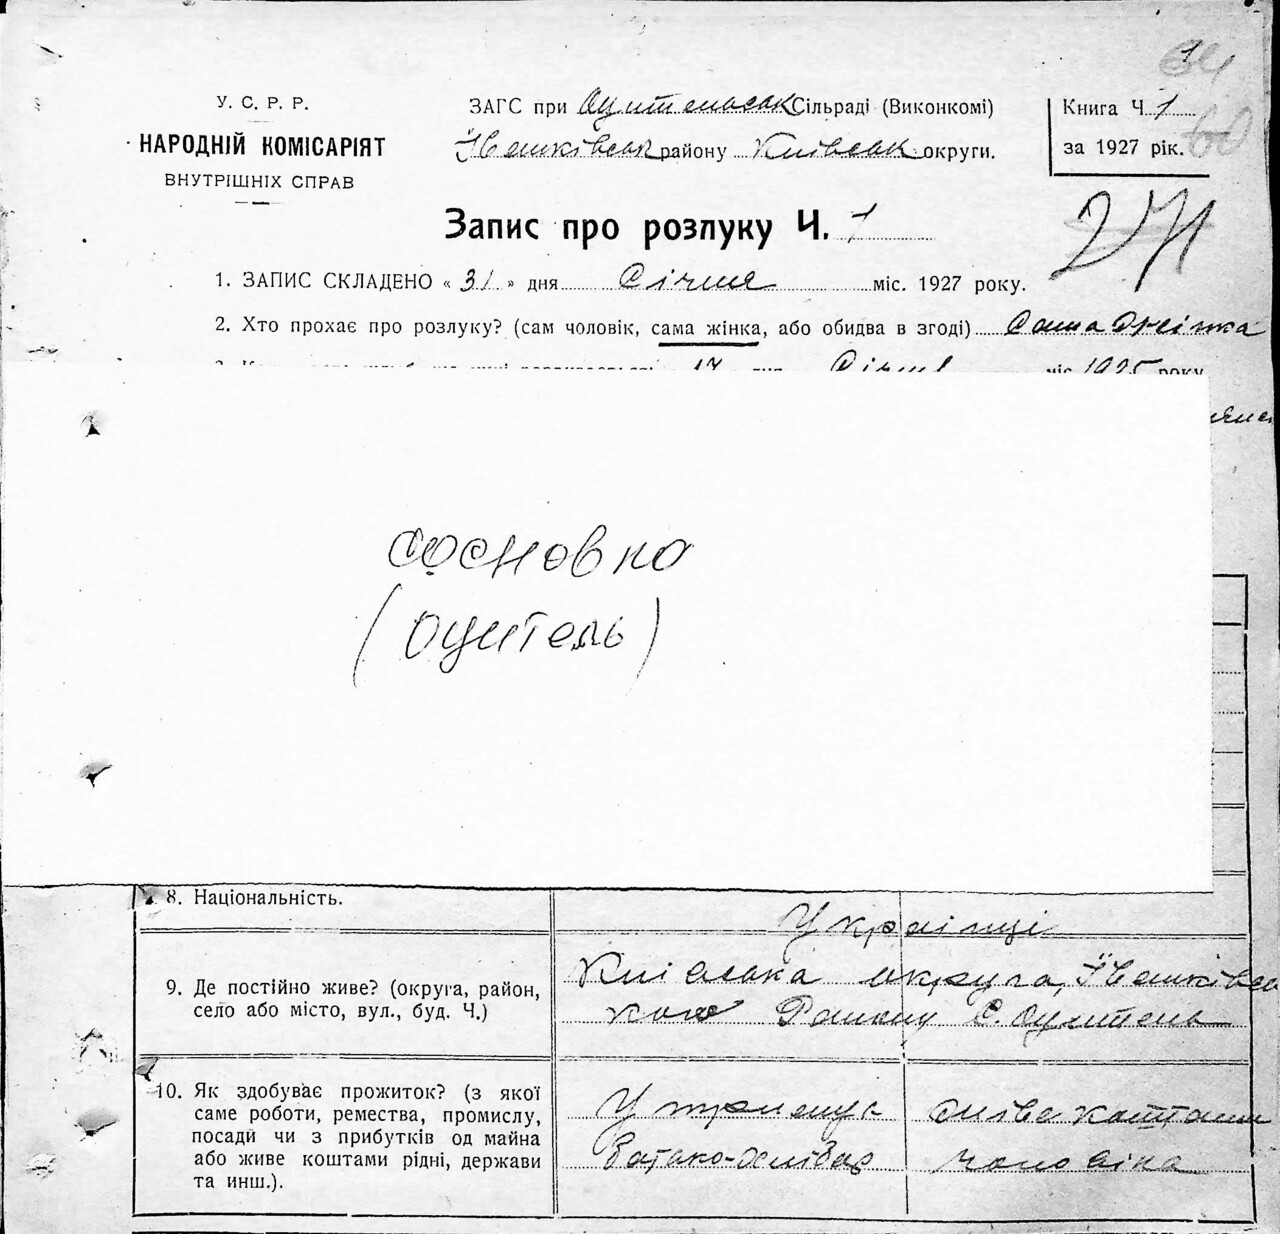 У. С. Р. Р.
НАРОДНІЙ КОМІСАРІЯТ
ВНУТРІШНІХ СПРАВ
ЗАГС при Оцительськ Сільраді (Виконкомі)
району Київськ округи.
Книга Ч. 1
за 1927 рік.
60
271
Запис про розлуку Ч. 1
1. ЗАПИС СКЛАДЕНО « 31 » дня Січня міс. 1927 року.
2. Хто прохає про розлуку? (сам чоловік, сама жінка, або обидва в згоді) Сама жінка
17 дня Січня міс. 1925 року
Сосновка
(Оцитель)
8. Національність.
Українці
9. Де постійно живе? (округа, район,
село або місто, вул., буд. Ч.)
Київська округа,
Району С. Оцитель
10. Як здобуває прожиток? (з якої
саме роботи, ремества, промислу,
посади чи з прибутків од майна
або живе коштами рідні, держави
та инш.).
У
батько-хлібор
живе коштами
чоловіка